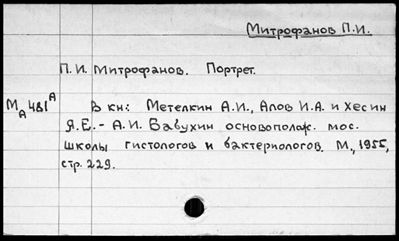 Митрофанов П.И.
П.И. Митрофанов. Портрет.
МА 481А В кн: Метелкин А.И., Алов И.А. и Хесин
Я.Е. - А.И. Бабухин основополож. мос.
школы гистологов и бактериологов. М., 1955,
стр. 229.